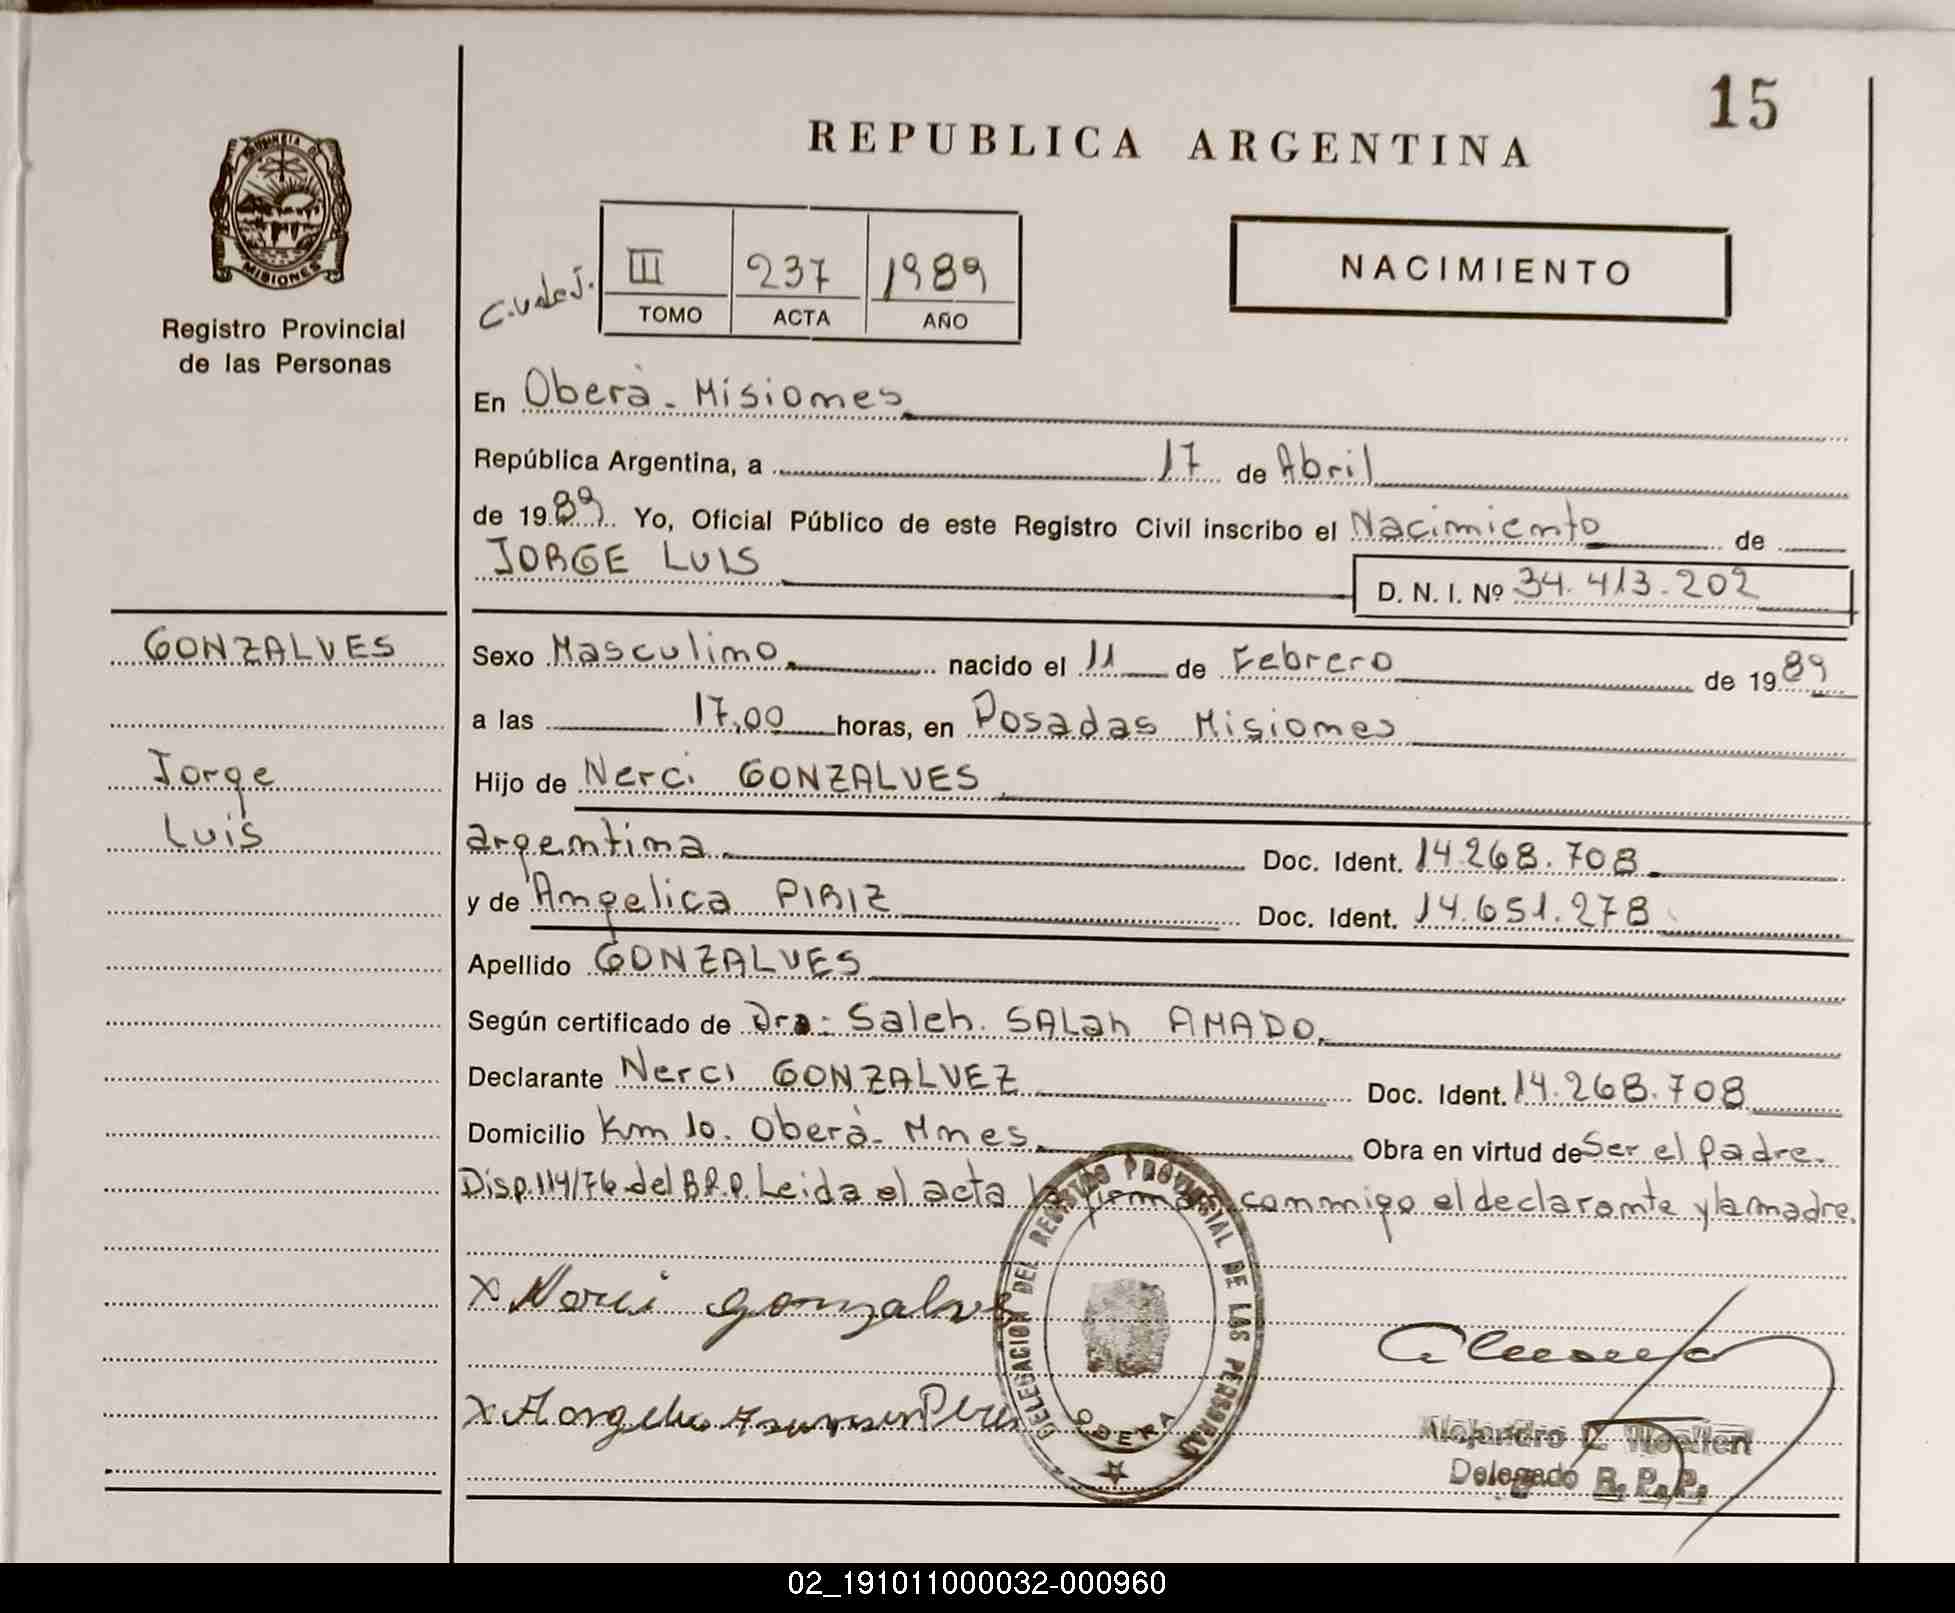 15
REPUBLICA ARGENTINA
PROVINCIA DE
MISIONES
Registro Provincial
de las Personas
NACIMIENTO
III 237 1989
TOMO ACTA AÑO
En Oberà - Misiones
República Argentina, a 17 de Abril
de 1989 Yo, Oficial Público de este Registro Civil inscribo el Nacimiento de
JORGE LUIS
D. N. I. Nº 34.413.202
GONZALVES
Jorge
Luis
Sexo Masculino nacido el 11 de Febrero de 1989
a las 17,00 horas, en Posadas Misiones
Hijo de Nerci GONZALVES
argentina Doc. Ident. 14.268.708
y de Angelica PIRIZ Doc. Ident. 14.651.278
Apellido GONZALVES
Según certificado de Dra: Saleh. SALAh AMADO.
Declarante Nerci GONZALVEZ Doc. Ident. 14.268.708
Domicilio Km 10. Oberà - Mnes. Obra en virtud de Ser el padre.
Disp. 114/76 del R.P.P. Leida el acta la firman conmigo el declarante y la madre.
x Nerci gonzalves
DELEGACION DEL REGISTRO PROVINCIAL DE LAS PERSONAS
OBERA
Alejandro
Delegado R. P. P.
02_191011000032-000960